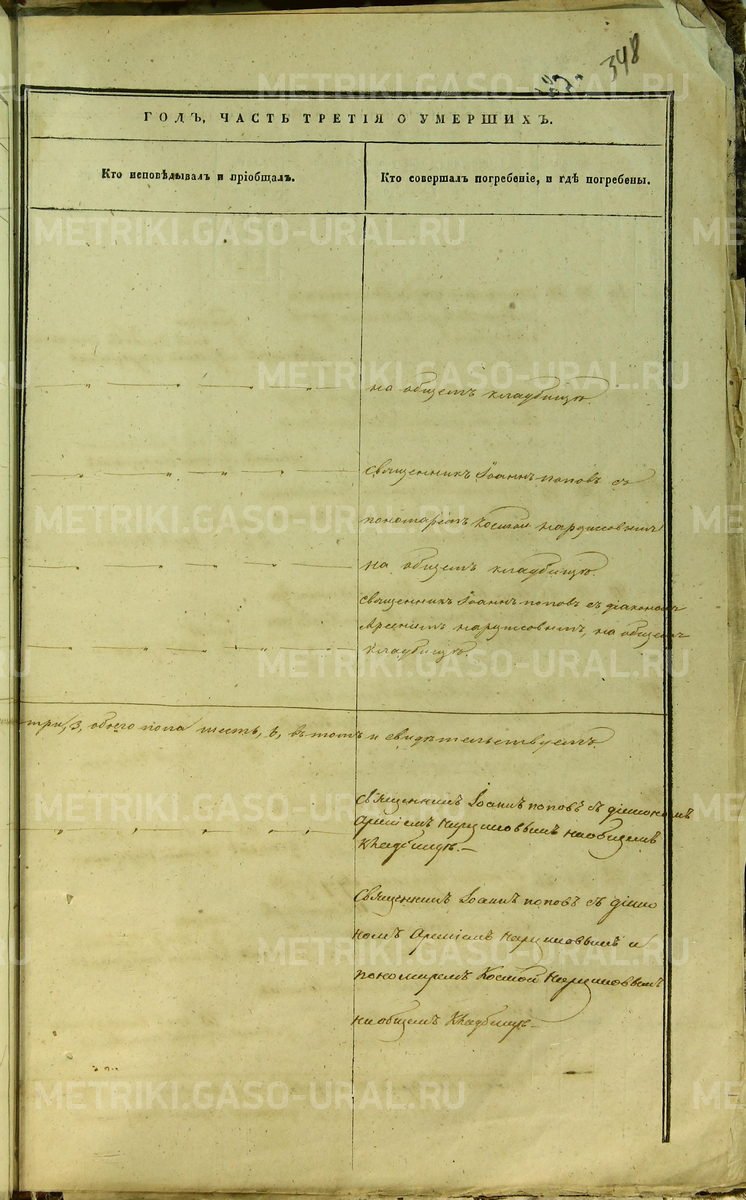 348
ГОДЪ, ЧАСТЬ ТРЕТІЯ О УМЕРШИХЪ.
Кто исповѣдывалъ и пріобщалъ.
Кто совершалъ погребеніе, и гдѣ погребены.
на общемъ кладбищѣ.
священникъ Іоаннъ поповъ съ
пономаремъ Космою нарциссовымъ
на общемъ кладбищѣ.
священникъ Іоаннъ поповъ съ діакономъ
Арсеніемъ нарциссовымъ, на общемъ
кладбищѣ.
три, 3, обоего пола шесть, 6, въ томъ и свидѣтельствуемъ.
Священникъ Іоаннъ поповъ съ діакономъ
Арсеніемъ нарциссовымъ на общемъ
кладбищѣ.—
Священникъ Іоаннъ поповъ съ діако
номъ Арсеніемъ нарциссовымъ и
пономаремъ Космой Нарциссовымъ
на общемъ кладбищѣ—
METRIKI.GASO-URAL.RU